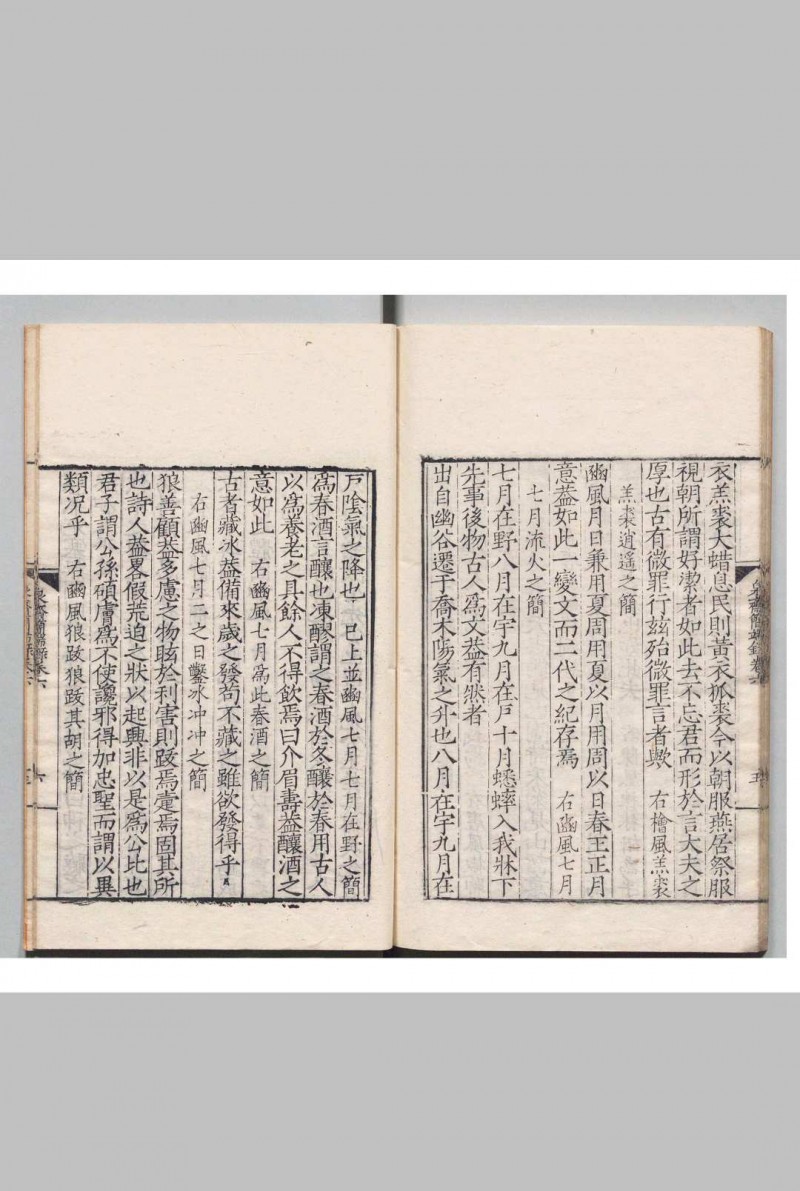 衣羔裘大蜡息民則黃衣狐裘今以朝服燕居祭服
視朝所謂好潔者如此去不忘君而形於言大夫之
厚也古有微罪行兹殆微罪言者歟　右檜風羔裘
羔裘逍遙之簡
豳風月日兼用夏周用夏以月用周以日春王正月
意葢如此一變文而二代之紀存焉　右豳風七月
七月流火之簡
七月在野八月在宇九月在戶十月蟋蟀入我牀下
先事後物古人爲文葢有然者
出自幽谷遷于喬木陽氣之升也八月在宇九月在
五
戶陰氣之降也　已上並豳風七月七月在野之簡
爲春酒言釀也凍醪謂之春酒於冬釀於春用古人
以爲養老之具餘人不得飲焉曰介眉壽葢釀酒之
意如此　右豳風七月爲此春酒之簡
古者藏冰葢備來歲之發茍不藏之雖欲發得乎
右豳風七月二之日鑿冰冲冲之簡
狼善顧葢多慮之物眩於利害則跋焉疐焉固其所
也詩人葢畧假荒迫之狀以起興非以是爲公比也
君子謂公孫碩膚爲不使讒邪得加忠聖而謂以異
類况乎　右豳風狼跋狼跋其胡之簡
六